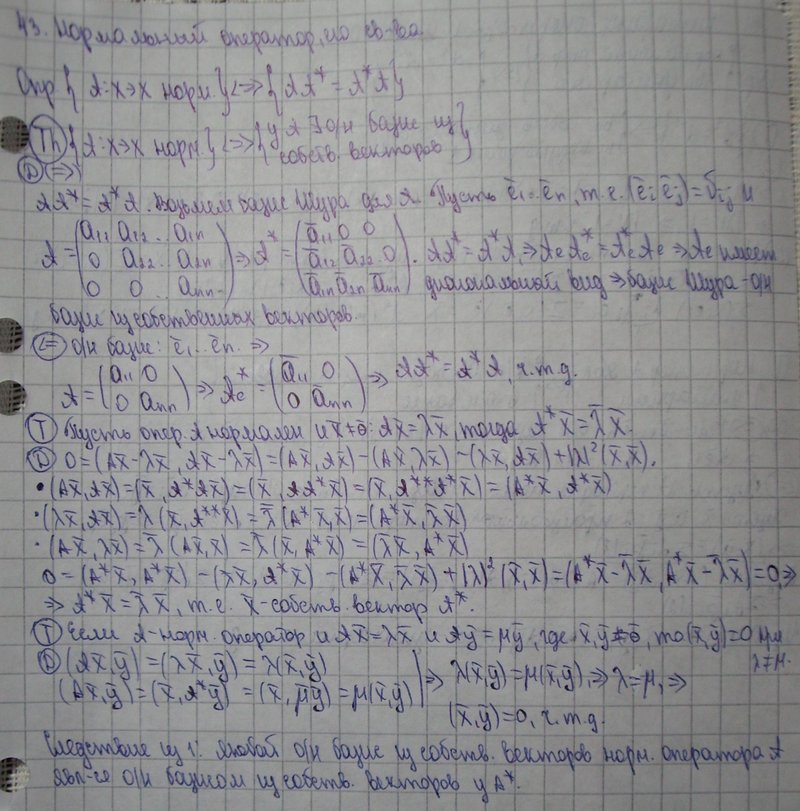 43. Нормальный оператор, его св-ва.
Опр { A: X→X норм. } <=> { AA* = A*A }
Th { A: X→X норм. } <=> { у A ∃ о/н базис из собств. векторов }
D (=>)
AA* = A*A. Возьмем базис Шура для A. Пусть ē₁..ēn, т.е. (ēᵢ ēⱼ) = δᵢⱼ и
A = (a₁₁ a₁₂.. a₁n; 0 a₂₂.. a₂n; 0 0.. ann) => A* = (ā₁₁ 0 0; ā₁₂ ā₂₂.. 0; ā₁n ā₂n ānn). AA* = A*A, => AeAe* = Ae*Ae => Ae имеет
диагональный вид => базис Шура - о/н
базис из собственных векторов.
(<=) о/н базис: ē₁.. ēn. =>
A = (a₁₁ 0; 0 ann) => Ae* = (ā₁₁ 0; 0 ānn) => AA* = A*A, ч.т.д.
T Пусть опер. A нормален и x̄ ≠ ō: Ax̄ = λx̄, тогда A*x̄ = λ̄x̄.
D 0 = (Ax̄ - λx̄, Ax̄ - λx̄) = (Ax̄, Ax̄) - (Ax̄, λx̄) - (λx̄, Ax̄) + |λ|²(x̄, x̄).
• (Ax̄, Ax̄) = (x̄, A*Ax̄) = (x̄, AA*x̄) = (x̄, A**A*x̄) = (A*x̄, A*x̄)
• (λx̄, Ax̄) = λ(x̄, A**x̄) = λ̄(A*x̄, x̄) = (A*x̄, λ̄x̄)
• (Ax̄, λx̄) = λ̄(Ax̄, x̄) = λ̄(x̄, A*x̄) = (λ̄x̄, A*x̄)
0 = (A*x̄, A*x̄) - (λ̄x̄, A*x̄) - (A*x̄, λ̄x̄) + |λ|²(x̄, x̄) = (A*x̄ - λ̄x̄, A*x̄ - λ̄x̄) = 0, =>
=> A*x̄ = λ̄x̄, т.е. x̄ - собств. вектор A*.
T Если A - норм. оператор и Ax̄ = λx̄ и Aȳ = μȳ, где x̄, ȳ ≠ ō, то (x̄, ȳ) = 0 при
λ ≠ μ.
D (Ax̄, ȳ) = (λx̄, ȳ) = λ(x̄, ȳ)
(Ax̄, ȳ) = (x̄, A*ȳ) = (x̄, μ̄ȳ) = μ(x̄, ȳ) | => λ(x̄, ȳ) = μ(x̄, ȳ), => λ = μ, =>
(x̄, ȳ) = 0, ч.т.д.
Следствие из 1: любой о/н базис из собств. векторов норм. оператора A
явл-ся о/н базисом из собств. векторов у A*.